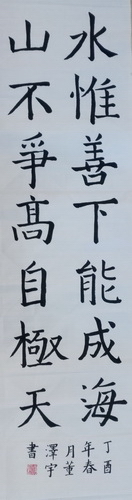 水惟善下能成海
山不爭髙自極天
丁酉年春
月董澤宇
書